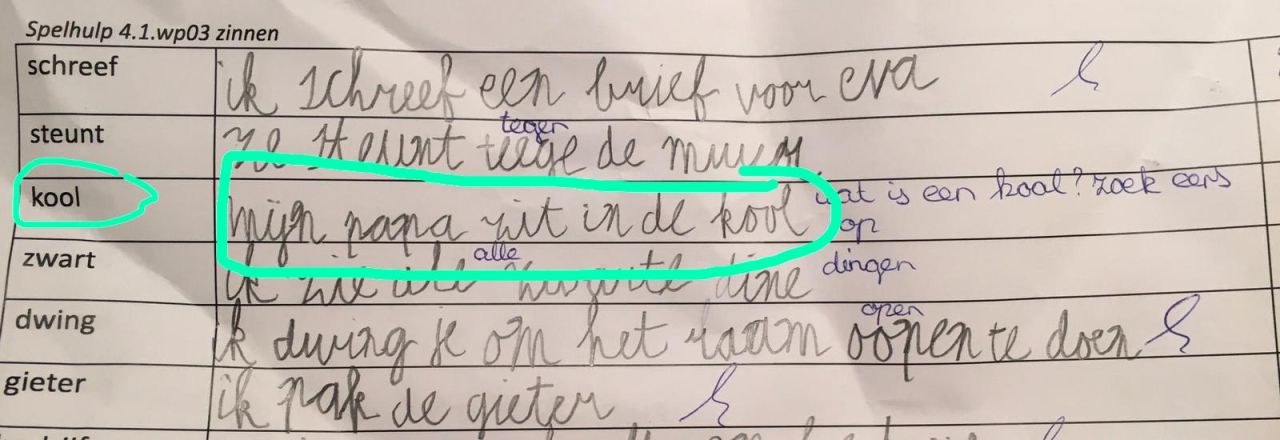 Spelhulp 4.1.wp03 zinnen
schreef ik schreef een brief voor eva
tegen
steunt ze steunt teege de muur
kool mijn papa zit in de kool wat is een kool? zoek eens
op
alle
zwart ik zie ale zwarte dine dingen
open
dwing ik dwing je om het raam oopen te doen
gieter ik pak de gieter